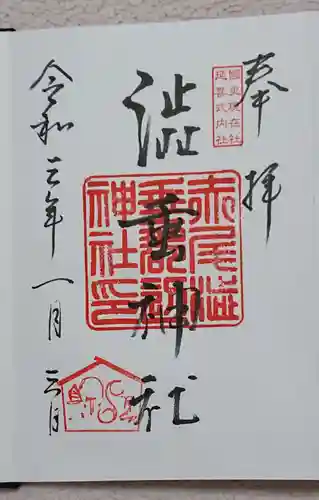 奉拝
國史現在社
延喜式内社
澁垂神社
赤尾澁
垂郡辺
神社印
令和三年一月三日